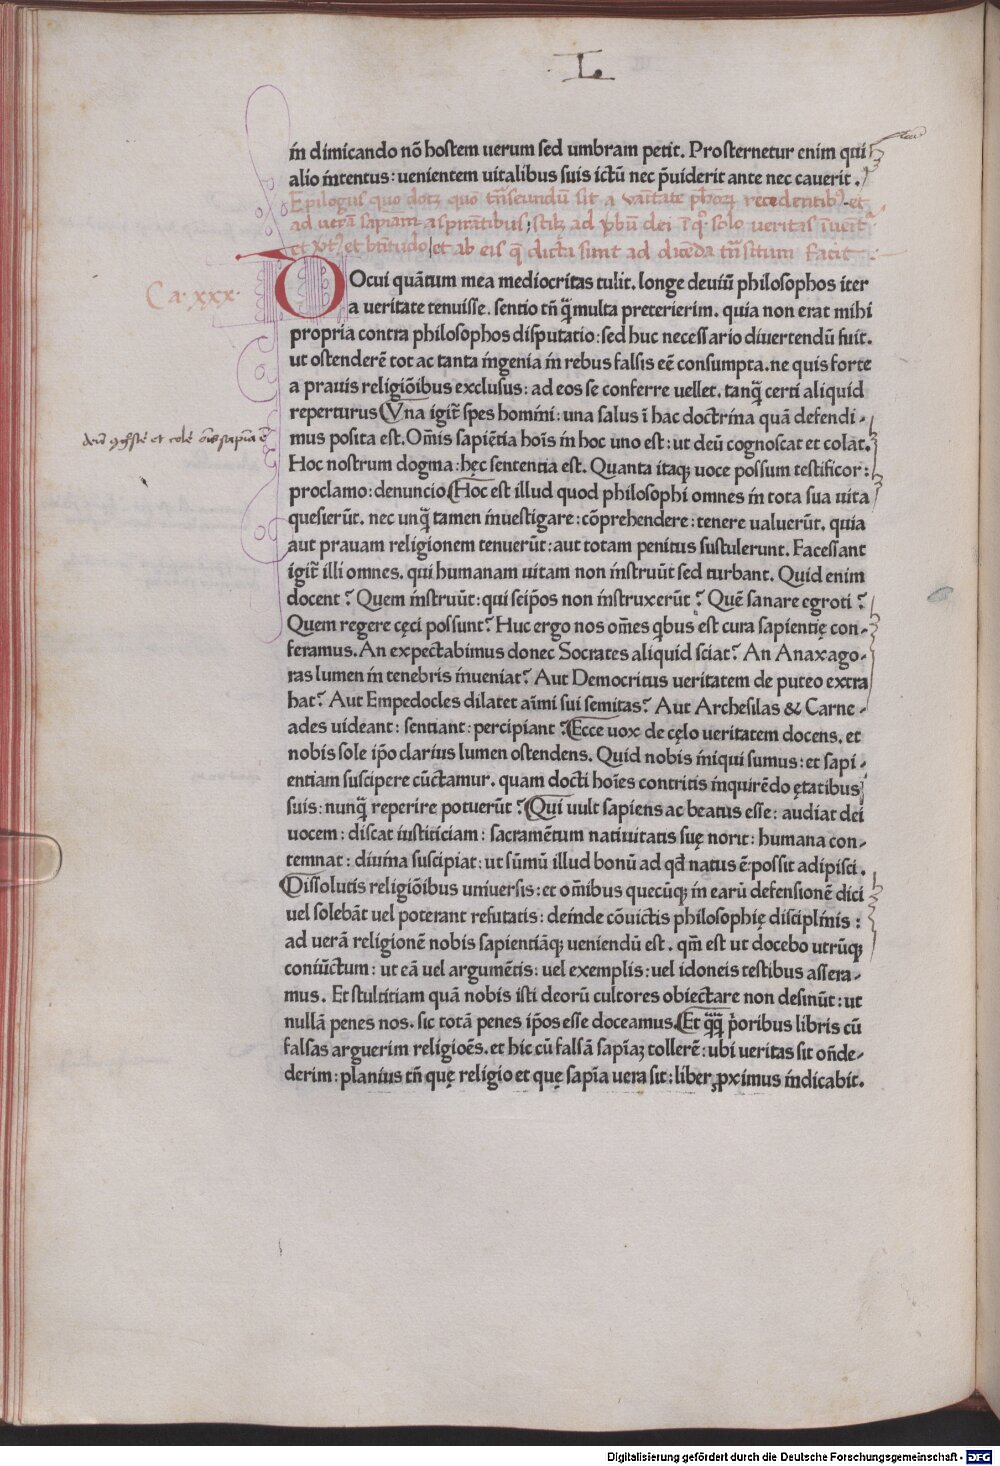 L.
in dimicando nō hostem uerum sed umbram petit. Prosternetur enim qui
alio intentus: uenientem uitalibus suis ictū nec p̄uiderit ante nec cauerit.
Epilogus quo docet quō trāseundū sit a vanitate ph̄orꝝ recedentibꝰ et
ad uerā sapiam aspirātibus, scilꝫ ad ỽbū dei ī qͦ solo veritas īvenit͛
et ỽtꝰ et btītudo et ab eis q̄ dicta sunt ad dicēda trāsitum facit
Ca. xxx.
DOcui quātum mea mediocritas tulit. longe deuiū philosophos iter
a ueritate tenuisse. sentio tn̄ q̄ multa preterierim. quia non erat mihi
propria contra philosophos disputatio: sed huc necessario diuertendū fuit.
ut ostenderē tot ac tanta ingenia in rebus falsis eē consumpta. ne quis forte
a prauis religiōibus exclusus: ad eos se conferre uellet. tanq̄ certi aliquid
reperturus Vna igit͛ spes homini: una salus ī hac doctrina quā defendi-
deū ꝯgnoscē et colē oīs sapīa ē
mus posita est. Om̄is sapiētia hoīs in hoc uno est: ut deū cognoscat et colat.
Hoc nostrum dogma: hęc sententia est. Quanta itaqꝫ uoce possum testificor:
proclamo: denuncio. Hoc est illud quod philosophi omnes in tota sua uita
quesierūt. nec unq̄ tamen inuestigare: cōprehendere: tenere ualuerūt. quia
aut prauam religionem tenuerūt: aut totam penitus sustulerunt. Facessant
igit͛ illi omnes. qui humanam uitam non instruūt sed turbant. Quid enim
docent? Quem instruūt: qui seip̄os non instruxerūt? Quē sanare egroti?
Quem regere cęci possunt? Huc ergo nos om̄es qͥbus est cura sapientię con-
feramus. An expectabimus donec Socrates aliquid sciat? An Anaxago-
ras lumen in tenebris inueniat? Aut Democritus ueritatem de puteo extra
hat? Aut Empedocles dilatet aīmi sui semitas? Aut Archesilas & Carne-
ades uideant: sentiant: percipiant? Ecce uox de cęlo ueritatem docens. et
nobis sole ip̄o clarius lumen ostendens. Quid nobis iniqui sumus: et sapi-
entiam suscipere cūctamur. quam docti hoīes contritis inquirēdo ętatibus
suis: nunq̄ reperire potuerūt? Qui uult sapiens ac beatus esse: audiat dei
uocem: discat iustiticiam: sacramētum natiuitatis suę norit: humana con-
temnat: diuina suscipiat: ut sūmū illud bonū ad qd̄ natus ē: possit adipisci.
Dissolutis religiōibus uniuersis: et om̄ibus quecūqꝫ in earū defensionē dici
uel solebāt uel poterant refutatis: deinde cōuictis philosophię disciplinis:
ad uerā religionē nobis sapientiāqꝫ ueniendū est. qm̄ est ut docebo utrūqꝫ
coniūctum: ut eā uel argumētis: uel exemplis: uel idoneis testibus assera-
mus. Et stultitiam quā nobis isti deorū cultores obiectare non desinūt: ut
nullā penes nos. sic totā penes ip̄os esse doceamus. Et q̄q̄ p̄oribus libris cū
falsas arguerim religioēs. et hic cū falsā sap̄iaꝫ tollerē: ubi ueritas sit on̄de-
derim: planius tn̄ quę religio et quę sap̄ia uera sit: liber ꝓximus indicabit.
Digitalisierung gefördert durch die Deutsche Forschungsgemeinschaft - DFG